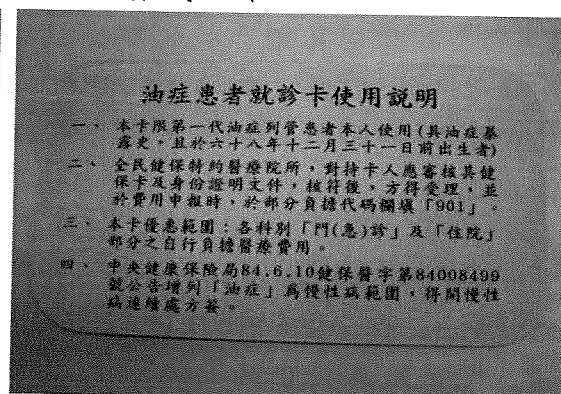 油症患者就診卡使用説明
一、本卡限第一代油症列管患者本人使用(具油症暴
露史,且於六十八年十二月三十一日前出生者)
二、全民健保特約醫療院所,對持卡人應審核其健
保卡及身份證明文件,核符後,方得受理,並
於費用申報時,於部分負擔代碼欄填「901」。
三、本卡優惠範圍:各科別「門(急)診」及「住院」
部分之自行負擔醫療費用。
四、中央健康保險局84.6.10健保醫字第84008499
號公告增列「油症」為慢性病範圍,得開慢性
病連續處方箋。